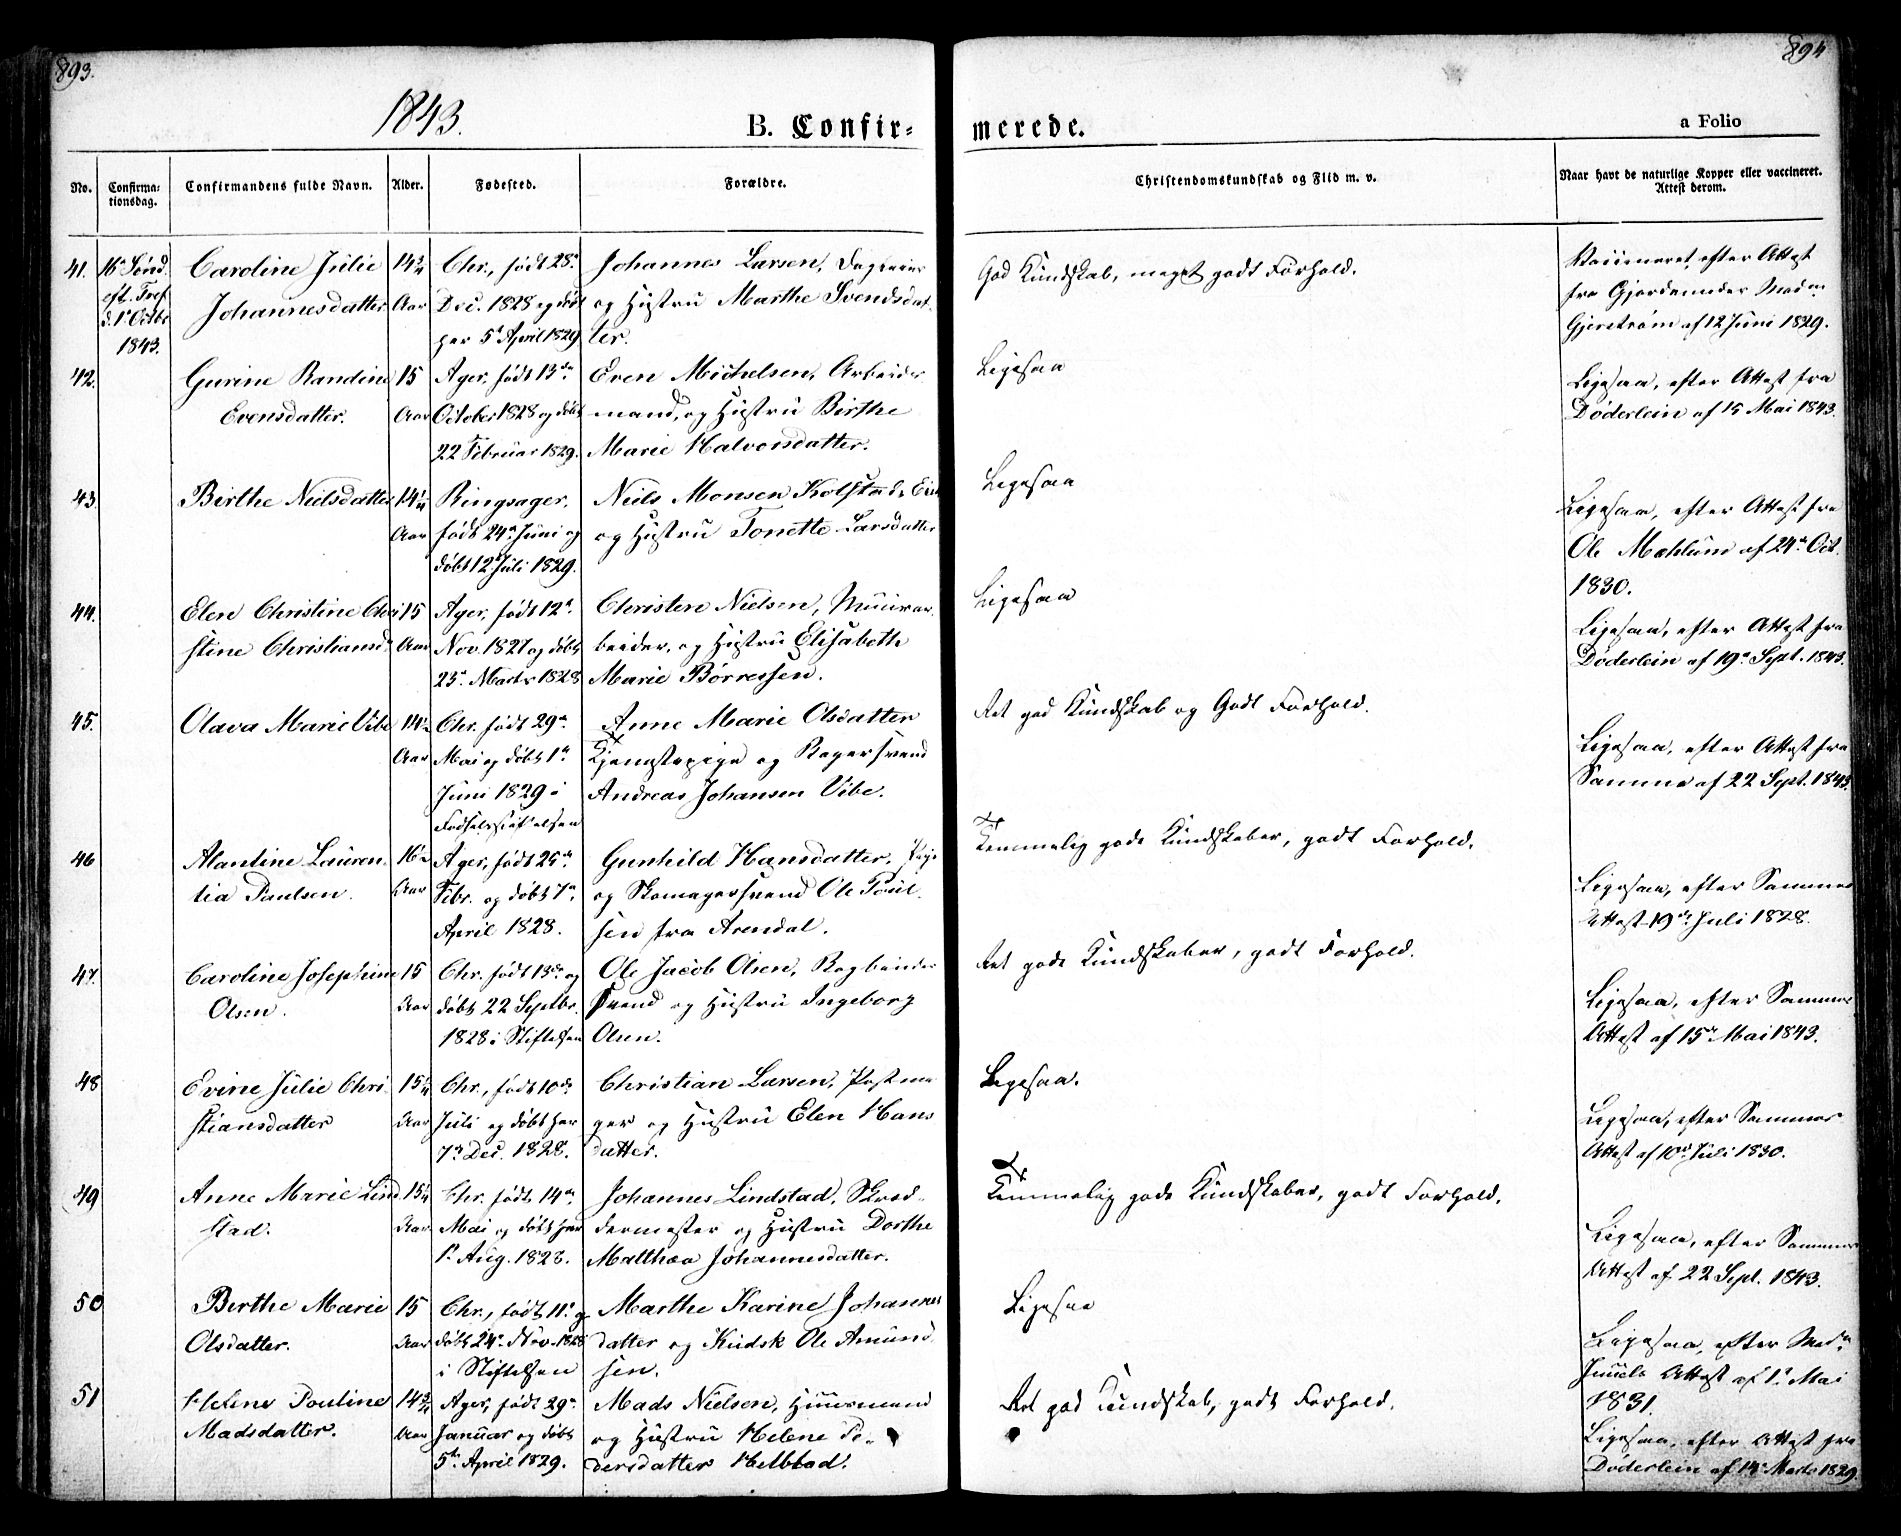 893.
894
1843.
B. Confir-
merede.
a Folio
No.
Confirma-
tionsdag.
Confirmandens fulde Navn.
Alder.
Fødested.
Forældre.
Christendomskundskab og Flid m. v.
Naar havt de naturlige Kopper eller vaccineret.
Attest derom.
41.
16de Sønd.
eft. Tref.
d. 1ste Octbr
1843.
Caroline Julie
Johannesdatter
14¾
Aar
Chr., født 28de
Dec. 1828 og døbt
her 5te April 1829
Johannes Larsen, Dagleier
og Hustru Marthe Svendsdat-
ter.
God Kundskab, meget godt Forhold.
Vaccineret, efter Attest
fra Gjordemoder Madm
Gjerstrøm af 12 Juni 1829.
42.
Gurine Randine
Evensdatter.
15
Aar
Ager, født 13de
October 1828 og døbt
22 Februar 1829.
Even Michelsen, Arbeids
mand, og Hustru Birthe
Marie Halvorsdatter.
Ligesaa
Ligesaa, efter Attest fra
Døderlein af 15 Mai 1843.
43.
Birthe Neilsdatter
14¼
Aar
Ringsager,
født 24de Juni og
døbt 12 Juli 1829.
Neils Monsen Kolstads Eie
og Hustru Tonette Larsdatter
Ligesaa
Ligesaa, efter Attest fra
Ole Mæhlum af 24de Oct.
1830.
44.
Elen Christine Chri
stine Christiansd.
15
Aar
Ager, født 12te
Nov. 1827 og døbt
23de Marts 1828
Christen Nielsen, Muurar-
beider, og Hustru Elisabeth
Marie Børresen.
Ligesaa
Ligesaa, efter Attest fra
Døderlein af 19de Sept. 1843.
45.
Olava Marie Vibe
14½
Aar
Chr. født 29de
Mai og døbt 1ste
Juni 1829 i
Fødselsstiftelsen
Anne Marie Olsdatter
Tjenestepige og Bagersvend
Andreas Johansen Vibe.
Ret god Kundskab og Godt Forhold.
Ligesaa, efter Attest fra
Samme af 22 Sept. 1843
46
Alantine Lauren-
tia Paulsen.
16½
Aar
Ager, født 25de
Febr. og døbt 7de
April 1828.
Gunhild Hansdatter, Pige
og Skomagersvend Ole Poul-
sen fra Arendal.
Temmelig gode Kundskaber, godt Forhold.
Ligesaa, efter Sammes
Attest 19de Juli 1828.
47.
Caroline Josephine
Olsen.
15
Aar
Chr. født 13de og
døbt 22 Septbr.
1828 i Stiftelsen
Ole Jacob Olsen, Bogbinder
svend og Hustru Ingeborg
Olsen.
Ret gode Kundskaber, godt Forhold.
Ligesaa, efter Sammes
Attest af 15de Mai 1843.
48
Evine Julie Chri-
stiansdatter
15¼
Aar
Chr., født 10de
Juli og døbt her
7de Dec. 1828.
Christian Larsen, Postma
ger og Hustru Elen Hans
datter.
Ligesaa.
Ligesaa, efter Sammes
Attest af 10de Juli 1830.
49
Anne Marie Lind
stad.
15¼
Aar
Chr. født 14de
Mai og døbt her
1ste Aug. 1828.
Johannes Lindstad, Skræd-
dermester og Hustru Dorthe
Matthea Johannesdatter.
Temmelig gode Kundskaber, godt Forhold.
Ligesaa, efter Sammes
Attest af 22 Sept. 1843.
50
Berthe Marie
Olsdatter.
15
Aar
Chr., født 11te og
døbt 24de Nov. 1828
i Stiftelsen
Marthe Karine Johannes
datter og Kudsk Ole Amund
sen.
Ligesaa
Ligesaa, efter Madm
Attest af 1ste Mai
1831.
51
Helene Pouline
Madsdatter.
14¾
Aar
Ager, født 29de
Januar og døbt
5te April 1829.
Mads Nielsen, Huusmand
og Hustru Helene Pe-
dersdatter Helblad.
Ret god Kundskab, godt Forhold.
Ligesaa, efter Attest fra
Døderlein af 14de Marts 1829.